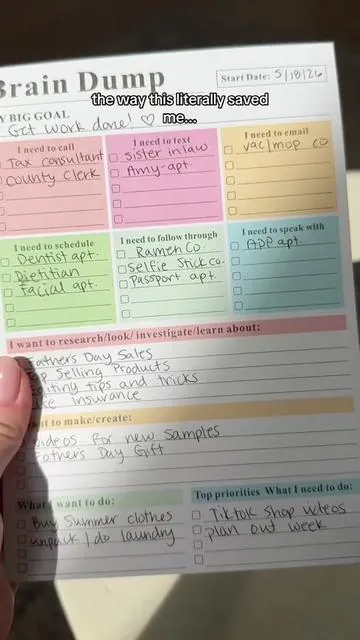 Brain Dump
Start Date: 5/18/26
the way this literally saved
me...
Y BIG GOAL
Get work done! ♡
I need to call
Tax consultant
County Clerk
I need to text
sister in law
Amy-apt.
I need to email
vac/mop co
I need to schedule
Dentist apt.
Dietitian
Facial apt.
I need to follow through
Ramen Co.
Selfie Stick co.
Passport apt.
I need to speak with
ADP apt.
I want to research/look/ investigate/learn about:
Fathers Day Sales
Selling Products
Editing tips and tricks
Insurance
want to make/create:
Videos for new Samples
Fathers Day Gift
What I want to do:
Buy Summer clothes
unpack / do laundry
Top priorities What I need to do:
TikTok Shop videos
plan out week